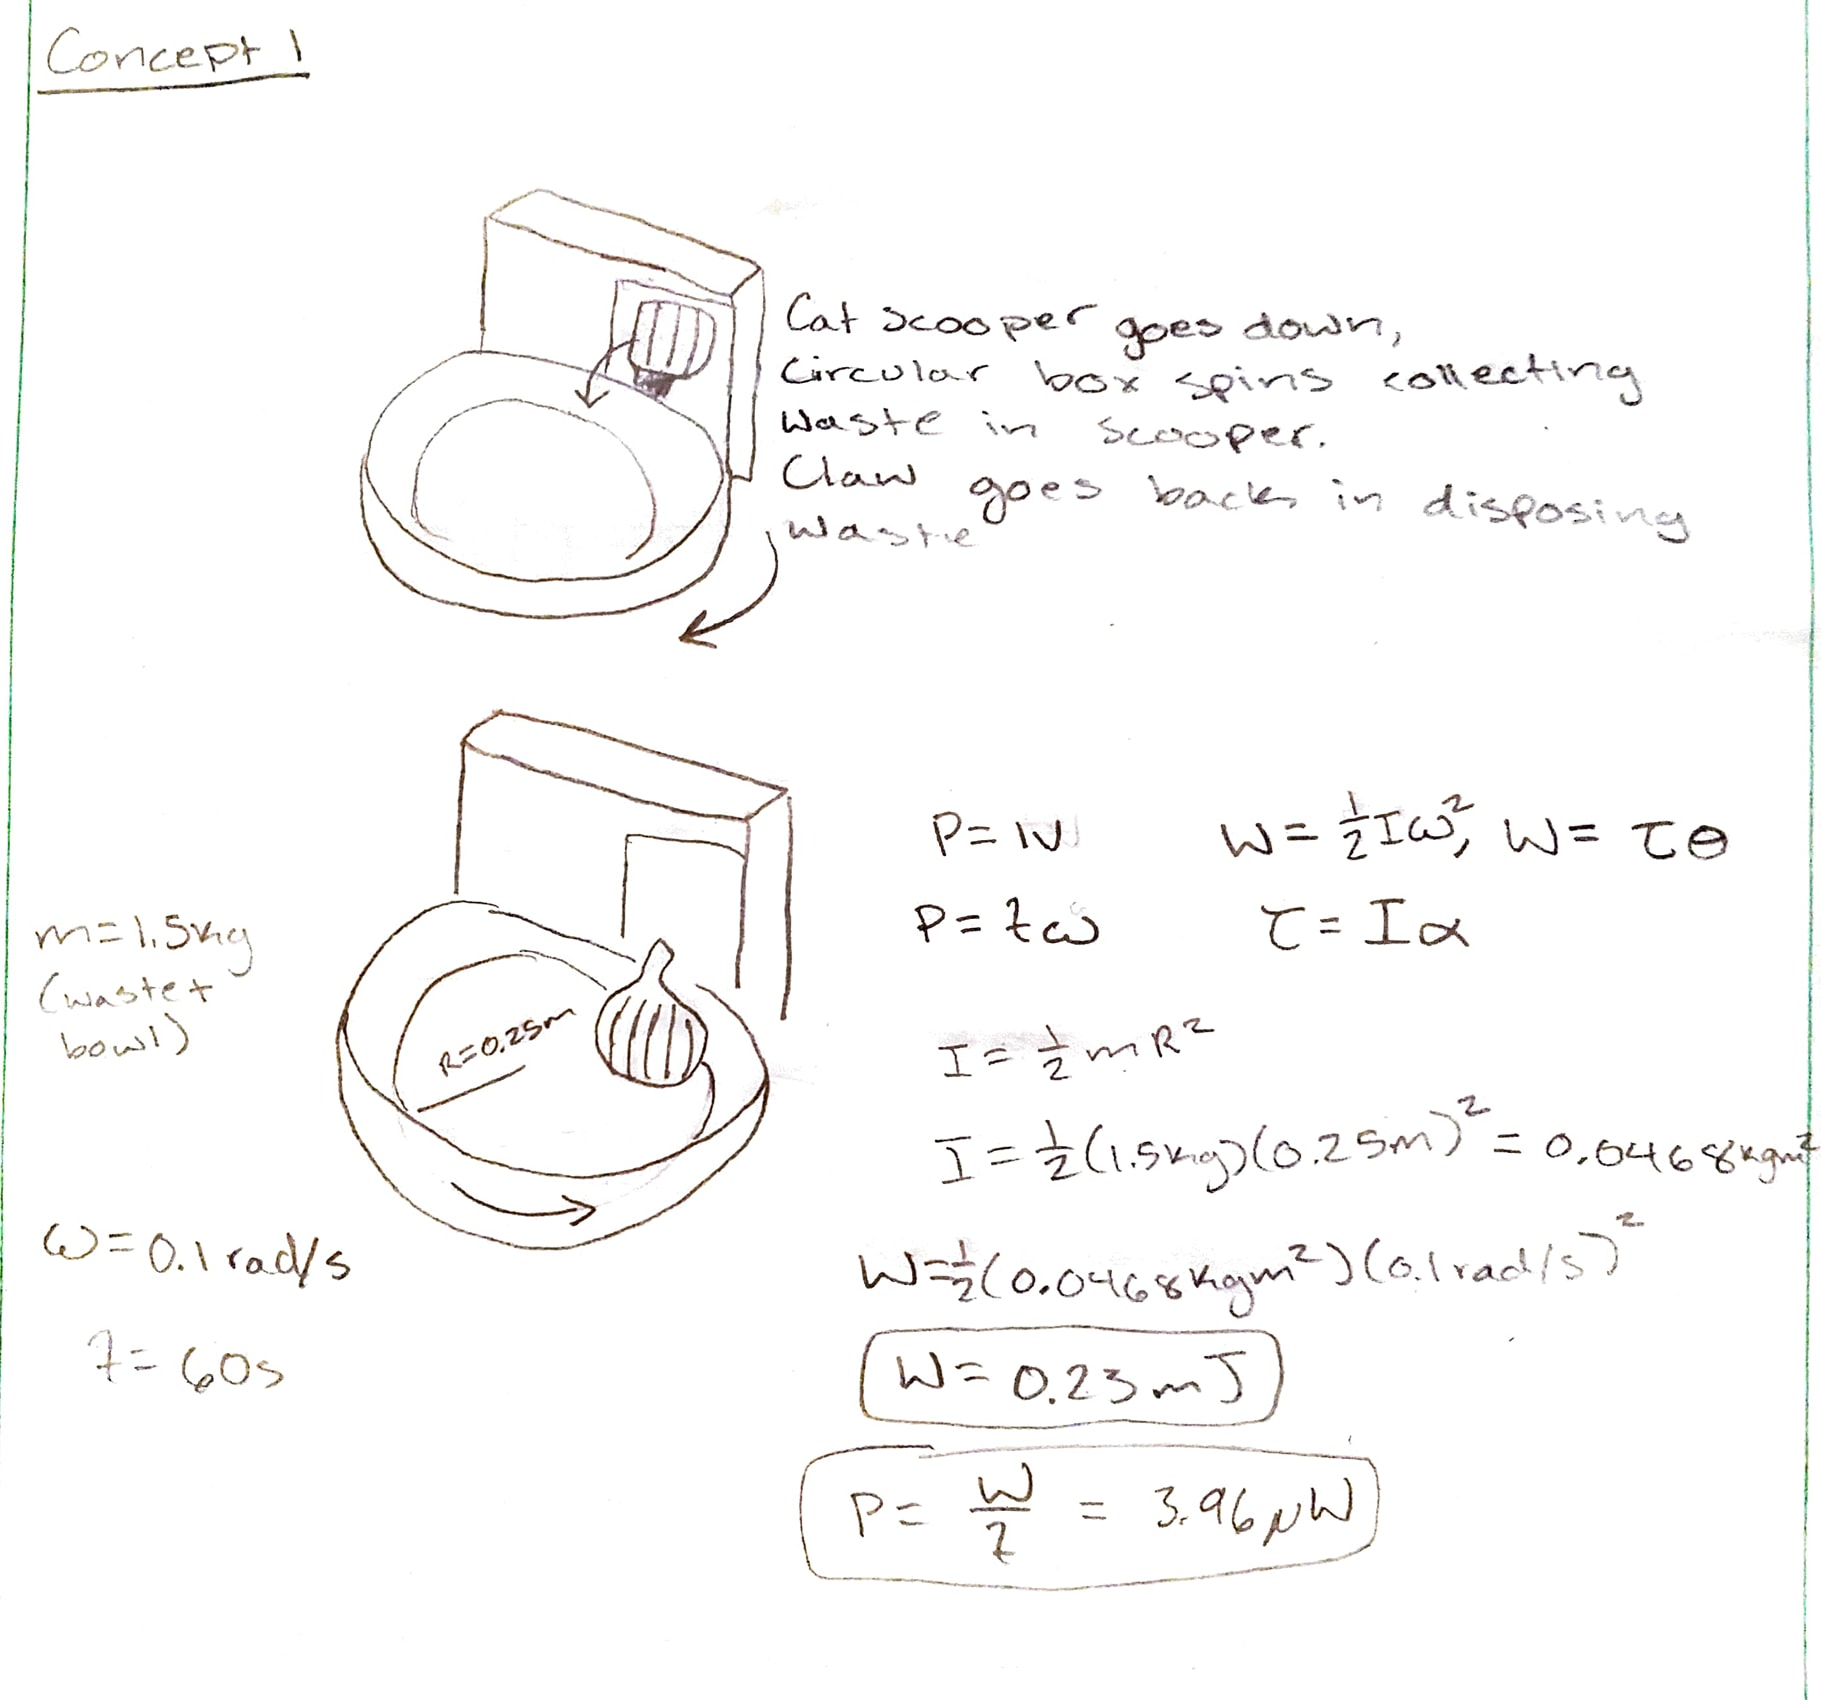 Concept 1
Cat scooper goes down,
Circular box spins collecting
waste in scooper.
Claw goes back in disposing
waste
P = IV
W = ½Iω², W = τθ
P = tω
τ = Iα
m = 1.5kg
(waste +
bowl)
R=0.25m
I = ½mR²
I = ½(1.5kg)(0.25m)² = 0.0468kgm²
ω = 0.1 rad/s
W=½(0.0468kgm²)(0.1rad/s)²
t = 60s
W = 0.23mJ
P = W/t = 3.96μW